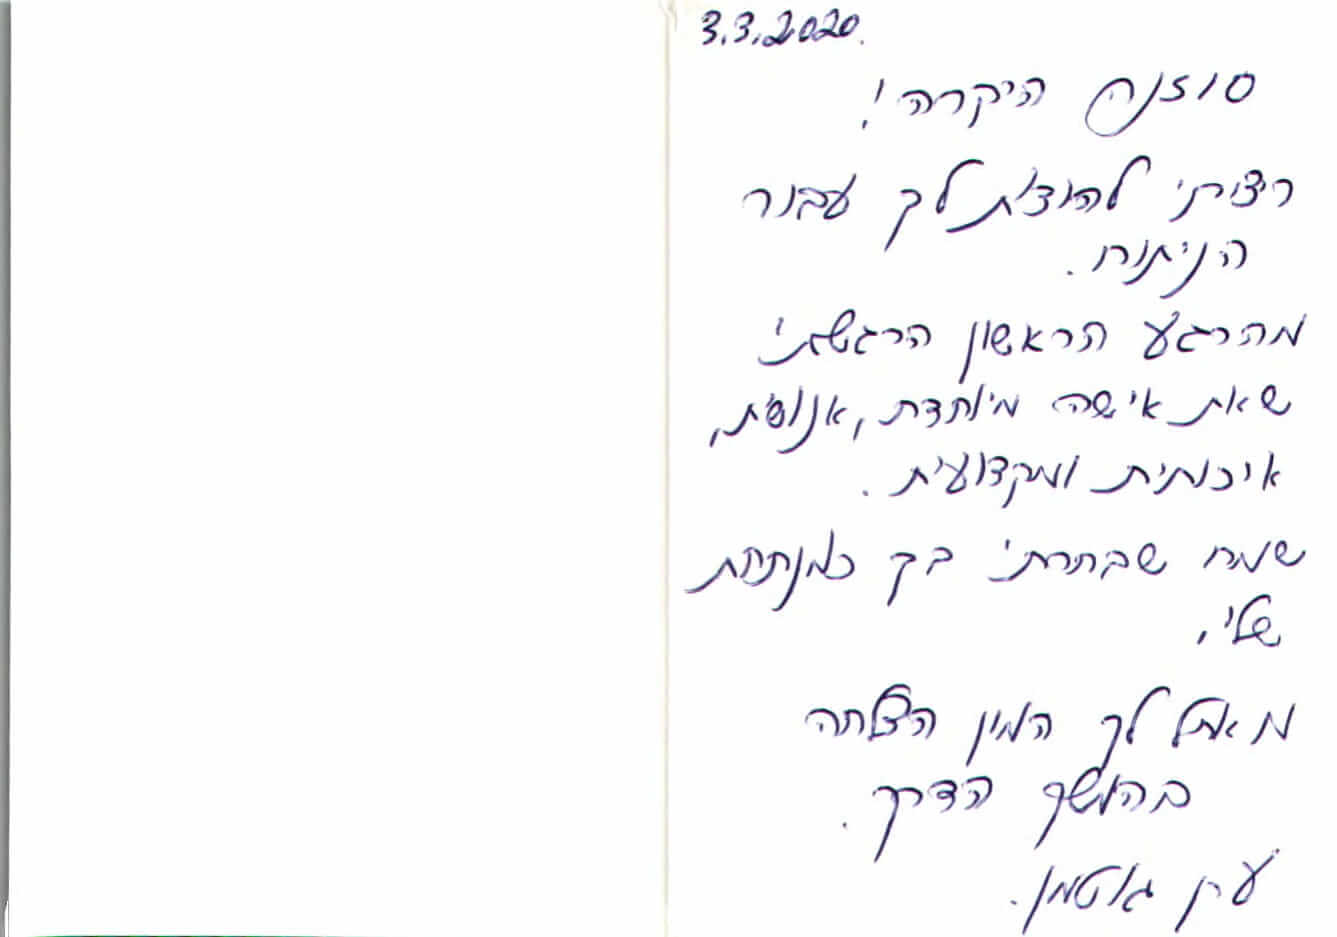 3.3.2020.
סוזנה היקרה!
רציתי להודות לך עבור
הניתוח.
מהרגע הראשון הרגשתי
שאת אישה מיוחדת, אנושית,
איכותית ומקצועית.
שמח שבחרתי בך כמנתחת
שלי.
מאחל לך המון הצלחה
בהמשך הדרך.
ערן גוטמן.